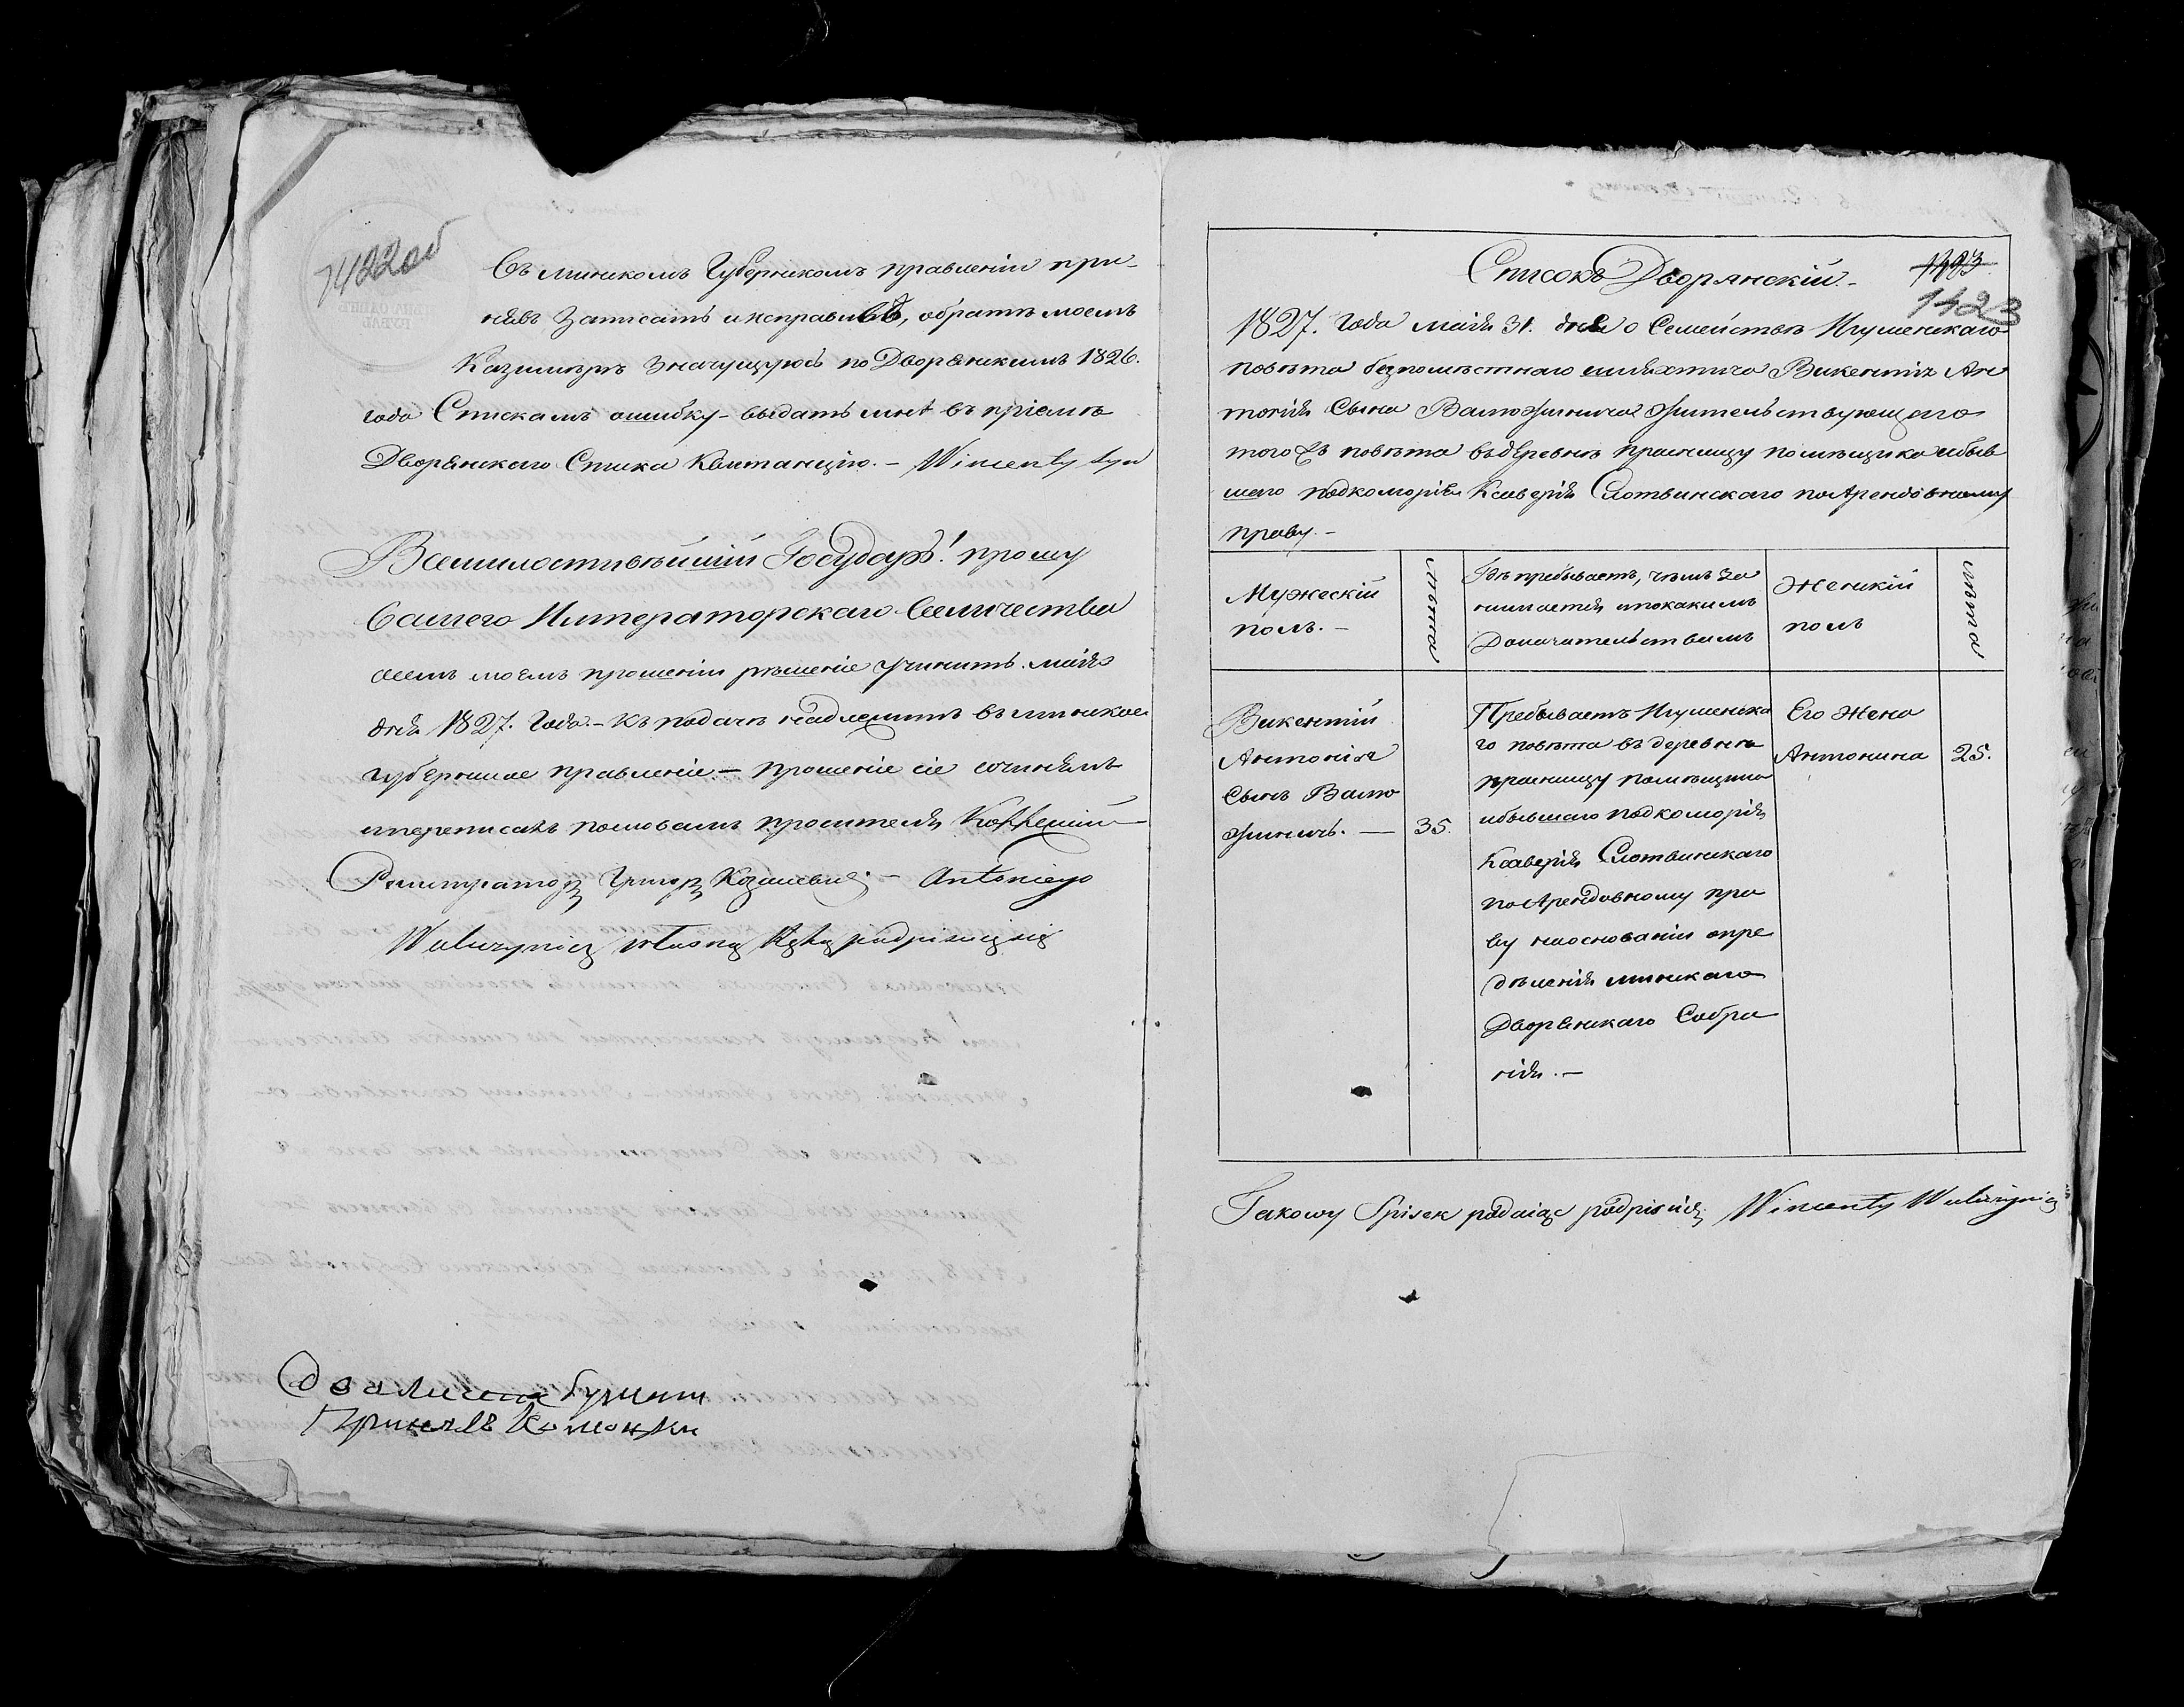 1422об
Въ минскомъ Губернскомъ правленіи при-
нявъ Записать и исправивъ, о братѣ моемъ
Казимиръ Значущуюсь по Дворянскимъ 1826.
года Спискамъ ошибку – выдать мнѣ въ пріемѣ
Дворянскаго Списка Квитанцію. – Wincenty syn
Всемилостивѣйшій Государь! прошу
Вашего Императорскаго Величества
о семъ моемъ прошеніи рѣшеніе учинить. Маія
дня 1827. Года. – Къ подачѣ надлежитъ въ минское
губернское правленіе – прошеніе сіе сочинялъ
и переписалъ по словамъ просителя Коллежскій
Регистраторъ Григорій – Antoniego
Wałużynicz własną Ręką podpisuję się
два листа бумаги
Принялъ
Списокъ Дворянскій. –
1423
1423
1827. Года маія 31. дня о Семействѣ Игуменскаго
повѣта безпомѣстнаго шляхтича Викентія Ан
тонія Сына Валюжинича Жительствующаго
того Жъ повѣта въ деревнѣ помѣщика и быв
шаго подкоморія Ксаверія Слотвинскаго по Арендовному
праву. –
Мужескій
полъ. –
лѣта
Гдѣ пребываетъ, чѣмъ за
нимается и по какимъ
Доказательствамъ
Женскій
полъ
лѣта
Викентій
Антонія
Сынъ Валю
жиничъ. – 35.
Пребываетъ Игуменска
го повѣта въ деревнѣ
помѣщика
и бывшаго подкоморія
Ксаверія Слотвинскаго
по Арендовному пра
ву на основаніи опре
дѣленія минскаго
Дворянскаго Собра
нія. –
Его Жена
Антонина 25.
Takowy Spisek podając podpisuję Wincenty Wałużynicz